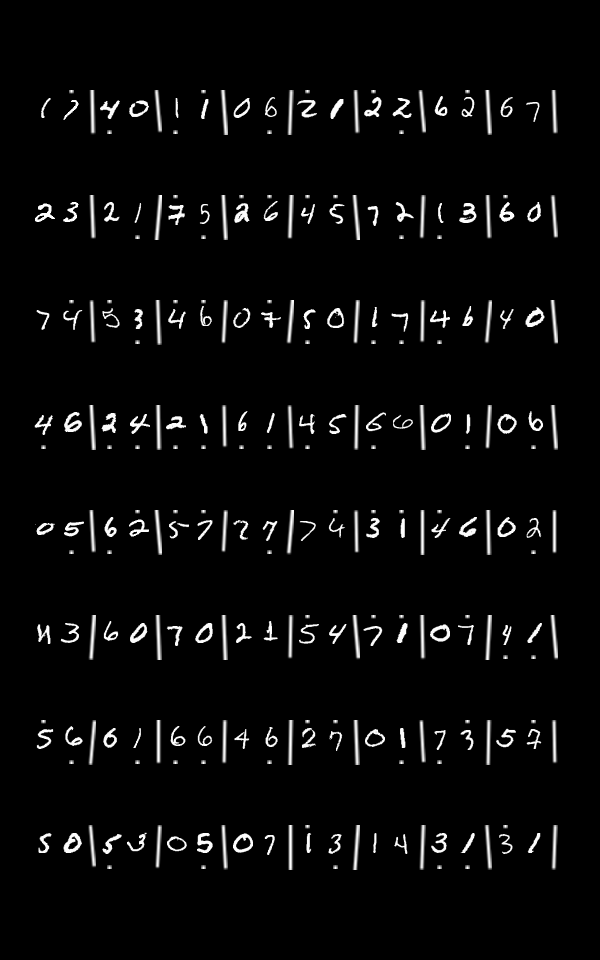 1 7 | 4 0 | 1 1 | 0 6 | 2 1 | 2 2 | 6 2 | 6 7 |
2 3 | 2 1 | 7 5 | 2 6 | 4 5 | 7 2 | 1 3 | 6 0 |
7 4 | 5 3 | 4 6 | 0 7 | 5 0 | 1 7 | 4 6 | 4 0 |
4 6 | 2 4 | 2 1 | 6 1 | 4 5 | 6 6 | 0 1 | 0 6 |
0 5 | 6 2 | 5 7 | 2 7 | 7 4 | 3 1 | 4 6 | 0 2 |
4 3 | 6 0 | 7 0 | 2 1 | 5 4 | 7 1 | 0 7 | 4 1 |
5 6 | 6 1 | 6 6 | 4 6 | 2 7 | 0 1 | 7 3 | 5 7 |
5 0 | 5 3 | 0 5 | 0 7 | 1 3 | 1 4 | 3 1 | 3 1 |